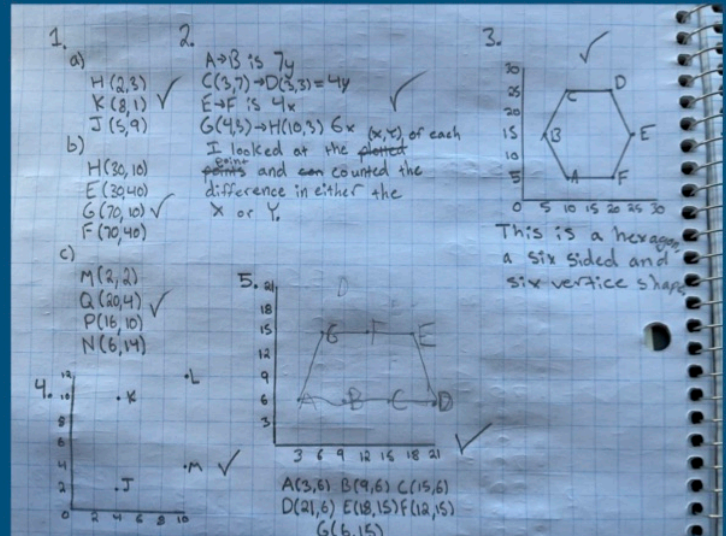 1.
a)
H(2,3)
K(8,1)
J(5,9)
b)
H(30,10)
E(30,40)
G(70,10)
F(70,40)
c)
M(2,2)
Q(20,4)
P(16,10)
N(6,14)
2.
A→B is 7y
C(3,7)→D(3,3)=4y
E→F is 4x
G(4,3)→H(10,3) 6x
I looked at the plotted (x,y), of each
points point and can counted the
difference in either the
X or Y.
3.
30
25
20
15
10
5
0 5 10 15 20 25 30
C D
B E
A F
This is a hexagon,
a six sided and
six vertice shape
4.
12
10
8
6
4
2
0 2 4 6 8 10
L
K
M
J
5.
21
18
15
12
9
6
3
3 6 9 12 15 18 21
D
G F E
A B C D
A(3,6) B(9,6) C(15,6)
D(21,6) E(18,15) F(12,15)
G(6,15)